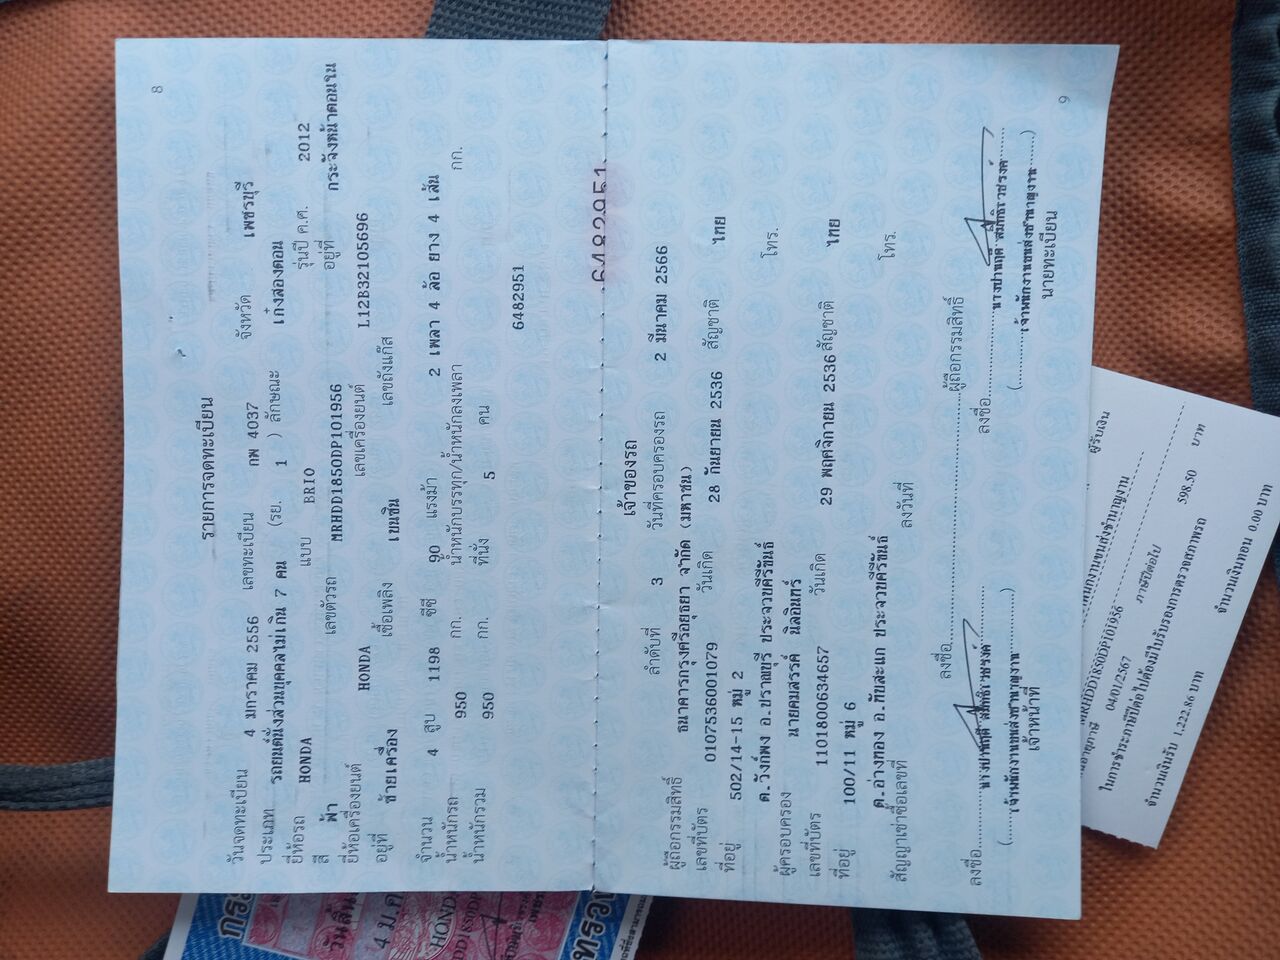 8
รายการจดทะเบียน
วันจดทะเบียน 4 มกราคม 2556 เลขทะเบียน กพ 4037 จังหวัด เพชรบุรี
ประเภท รถยนต์นั่งส่วนบุคคลไม่เกิน 7 คน (รย. 1 ) ลักษณะ เก๋งสองตอน
ยี่ห้อรถ HONDA แบบ BRIO รุ่นปี ค.ศ. 2012
สี ฟ้า เลขตัวรถ MRHDD1850DP101956 อยู่ที่ กระจังหน้าตอนใน
ยี่ห้อเครื่องยนต์ HONDA เลขเครื่องยนต์ L12B32105696
อยู่ที่ ซ้ายเครื่อง เชื้อเพลิง เบนซิน เลขถังแก๊ส
จำนวน 4 สูบ 1198 ซีซี 90 แรงม้า 2 เพลา 4 ล้อ ยาง 4 เส้น
น้ำหนักรถ 950 กก. น้ำหนักบรรทุก/น้ำหนักลงเพลา กก.
น้ำหนักรวม 950 กก. ที่นั่ง 5 คน
6482951
6482951
เจ้าของรถ
ลำดับที่ 3 วันที่ครอบครองรถ 2 มีนาคม 2566
ผู้ถือกรรมสิทธิ์ ธนาคารกรุงศรีอยุธยา จำกัด (มหาชน)
เลขที่บัตร 0107536001079 วันเกิด 28 กันยายน 2536 สัญชาติ ไทย
ที่อยู่ 502/14-15 หมู่ 2
ต.วังก์พง อ.ปราณบุรี ประจวบคีรีขันธ์ โทร.
ผู้ครอบครอง นายคมสรรค์ นิลอินทร์
เลขที่บัตร 1101800634657 วันเกิด 29 พฤศจิกายน 2536 สัญชาติ ไทย
ที่อยู่ 100/11 หมู่ 6
ต.อ่างทอง อ.ทับสะแก ประจวบคีรีขันธ์ โทร.
สัญญาเช่าซื้อเลขที่ ลงวันที่
ลงชื่อ ผู้ถือกรรมสิทธิ์
ลงชื่อ ลงชื่อ
(เจ้าพนักงานขนส่งชำนาญงาน) (เจ้าพนักงานขนส่งชำนาญงาน)
เจ้าหน้าที่ นายทะเบียน
9
ผู้รับเงิน
พนักงานขนส่งชำนาญงาน
MRHDD1850DP101956
04/01/2567 ภาษีปีต่อไป 598.50 บาท
ในการชำระภาษีปีต่อไปต้องมีใบรับรองการตรวจสภาพรถ
จำนวนเงินรับ 1,222.86 บาท จำนวนเงินทอน 0.00 บาท
วันสิ้น
4 ม.ค
HOND
DD1850DP